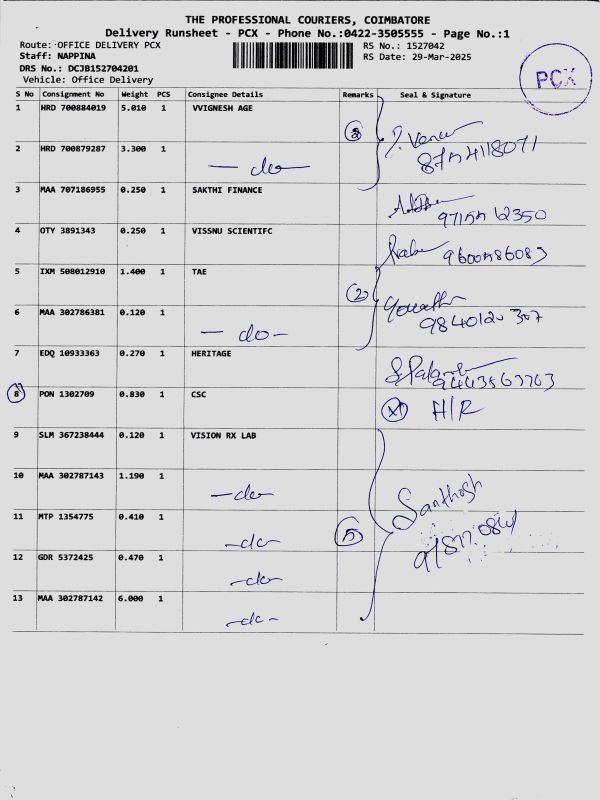 THE PROFESSIONAL COURIERS, COIMBATORE
Delivery Runsheet - PCX - Phone No.:0422-3505555 - Page No.:1
Route: OFFICE DELIVERY PCX
RS No.: 1527042
Staff: NAPPINA
RS Date: 29-Mar-2025
DRS No.: DCJB152704201
Vehicle: Office Delivery
PCX
S No Consignment No Weight PCS Consignee Details Remarks Seal & Signature
1 HRD 700884019 5.010 1 VVIGNESH AGE
2 HRD 700879287 3.300 1 — do —
3 MAA 707186955 0.250 1 SAKTHI FINANCE
4 OTY 3891343 0.250 1 VISSNU SCIENTIFC
5 IXM 508012910 1.400 1 TAE
2
6 MAA 302786381 0.120 1 — do —
7 EDQ 10933363 0.270 1 HERITAGE
9443563763
8 PON 1302709 0.830 1 CSC H/R
9 SLM 367238444 0.120 1 VISION RX LAB
10 MAA 302787143 1.190 1 — do —
Santhosh
11 MTP 1354775 0.410 1 — do —
5
12 GDR 5372425 0.470 1 — do —
13 MAA 302787142 6.000 1 — do —